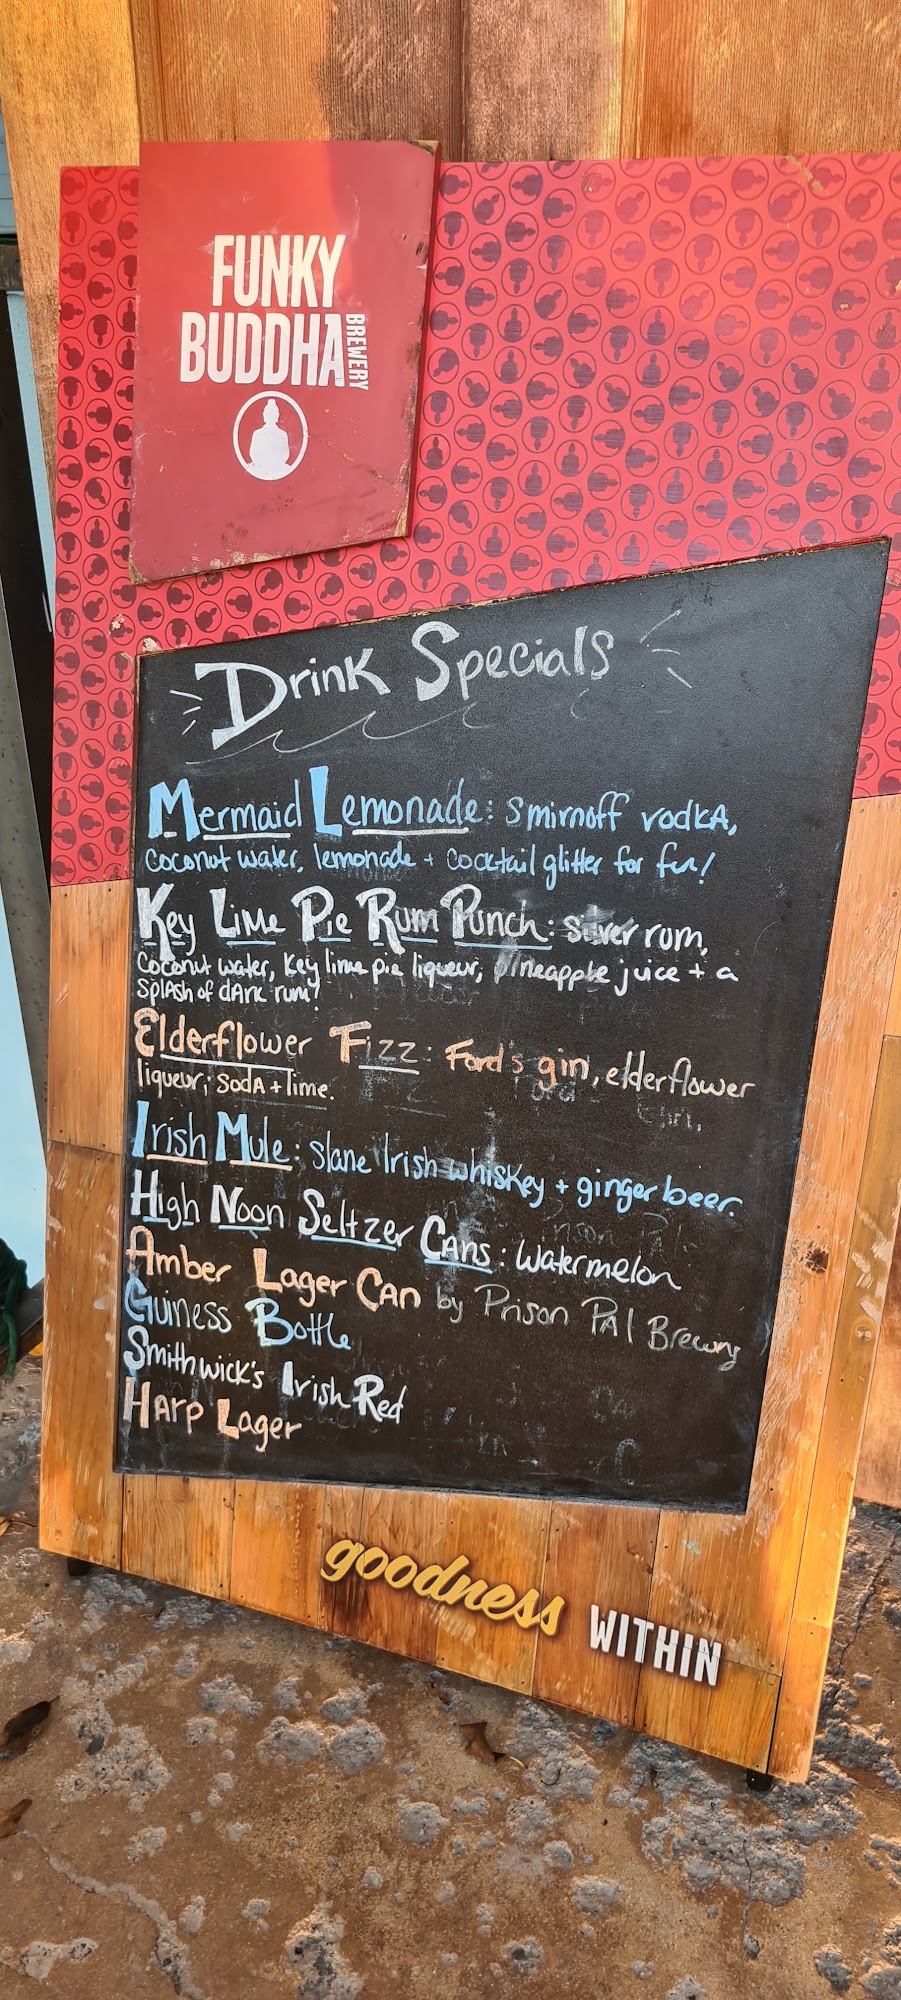 FUNKY
BUDDHA
BREWERY
Drink Specials
Mermaid Lemonade: Smirnoff vodka,
coconut water, lemonade + cocktail glitter for fun!
Key Lime Pie Rum Punch: Silver rum,
coconut water, Key lime pie liqueur, pineapple juice + a
splash of dark rum!
Elderflower Fizz: Ford's gin, elderflower
liqueur, soda + lime.
Irish Mule: Slane Irish whiskey + ginger beer.
High Noon Seltzer Cans: Watermelon
Amber Lager Can by Prison Pal Brewry
Guiness Bottle
Smithwick's Irish Red
Harp Lager
goodness WITHIN